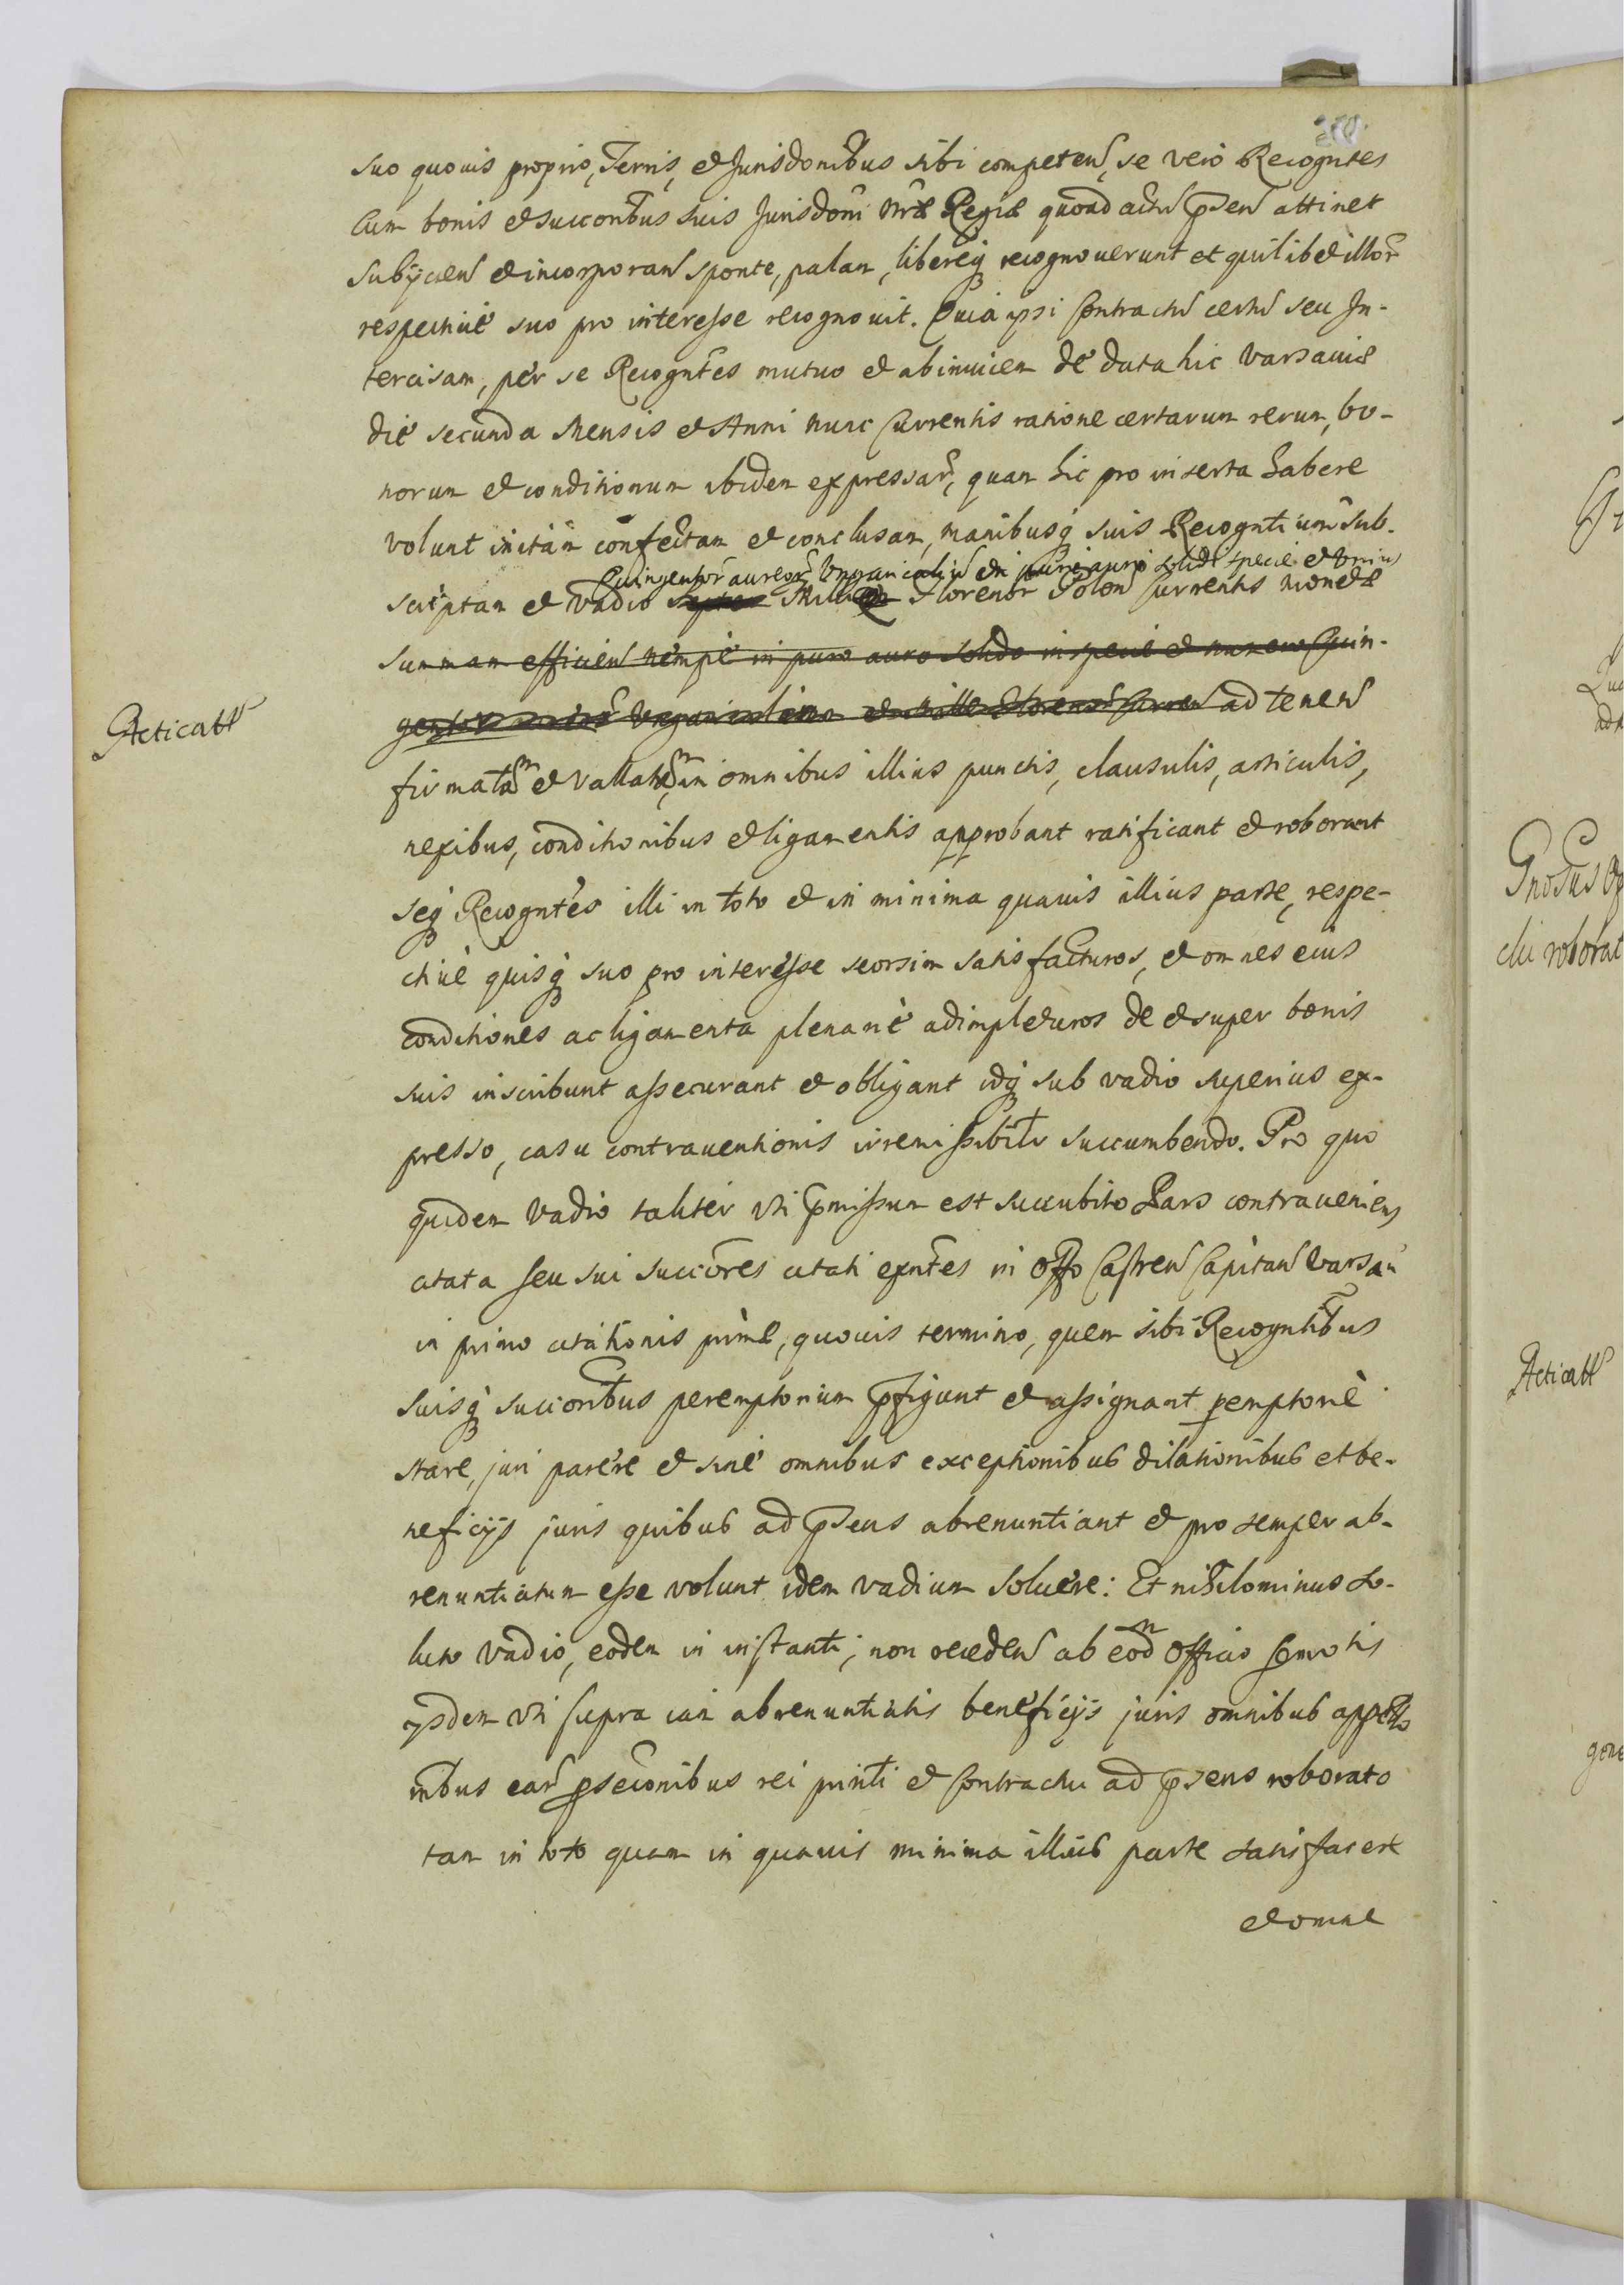 suo quouis proprio, Terris, et Jurisdonibus sibi competen, se vero Recogntes
Cum bonis et succoribus suis Jurisdoni nræ Regiæ quoad actu pnsen attinet
Subÿcien et incorporan sponte, palam, libereq recognouerunt et quilibet illor
respectiuè suo pro interesse recognouit. Quia ipsi Contractu certu seu In-
tercisam, per se Recogntes mutuo et abinuicem de data hic Varsauiæ
die secunda Mensis et Anni nunc Currentis ratione certarum rerum, bo-
norum et conditionum ibidem expressar, quam hic pro inserta habere
volunt initam confectam et conclusam, manibusq suis Recogntium sub-
Quingentor aureor Vngaricaliu in puri auri solidi specie et
scriptam et vadio Florenor Polon Currentis monetæ
summam efficien nempe in puro auro solido in specie et numero Quin-
gentor ad tenen
Acticatt
firmatam et vallatam, in omnibus illius punctis, clausulis, articulis,
nexibus, conditionibus et ligamentis approbant ratificant et roborant
seq Recogntes illi in toto et in minima quauis illius parte, respe-
ctiuè quisq suo pro interesse seorsim satisfacturos, et omnes eius
conditiones ac ligamenta plenariè adimpleturos de et super bonis
suis inscribunt assecurant et obligant idq sub vadio superius ex-
presso, casu contrauentionis irremissibilr succumbendo. Pro quo
quidem vadio taliter vti pmissum est succubito Pars contraueniens
citata seu sui succores citati exntes in Offo Castren Capitan Varsau
in primo citationis primæ, quouis termino, quem sibi Recogntibus
suisq succoribus peremptorium pfigunt et assignant pemptoriè
stare, juri parere et sine omnibus exceptionibus dilationibus et be-
neficijs juris quibus ad psens abrenuntiant et pro semper ab-
renuntiatum esse volunt idem vadium soluere: Et nihilominus so-
luto vadio, eodem in instanti, non receden ab eod officio semotis
ijsdem vti supra iam abrenuntiatis beneficijs juris omnibus appello
nibus ear psecionibus rei printi et Contractui ad psens roborato
tam in toto quam in quauis minima illius parte satisfacere
et omne
Acticatt